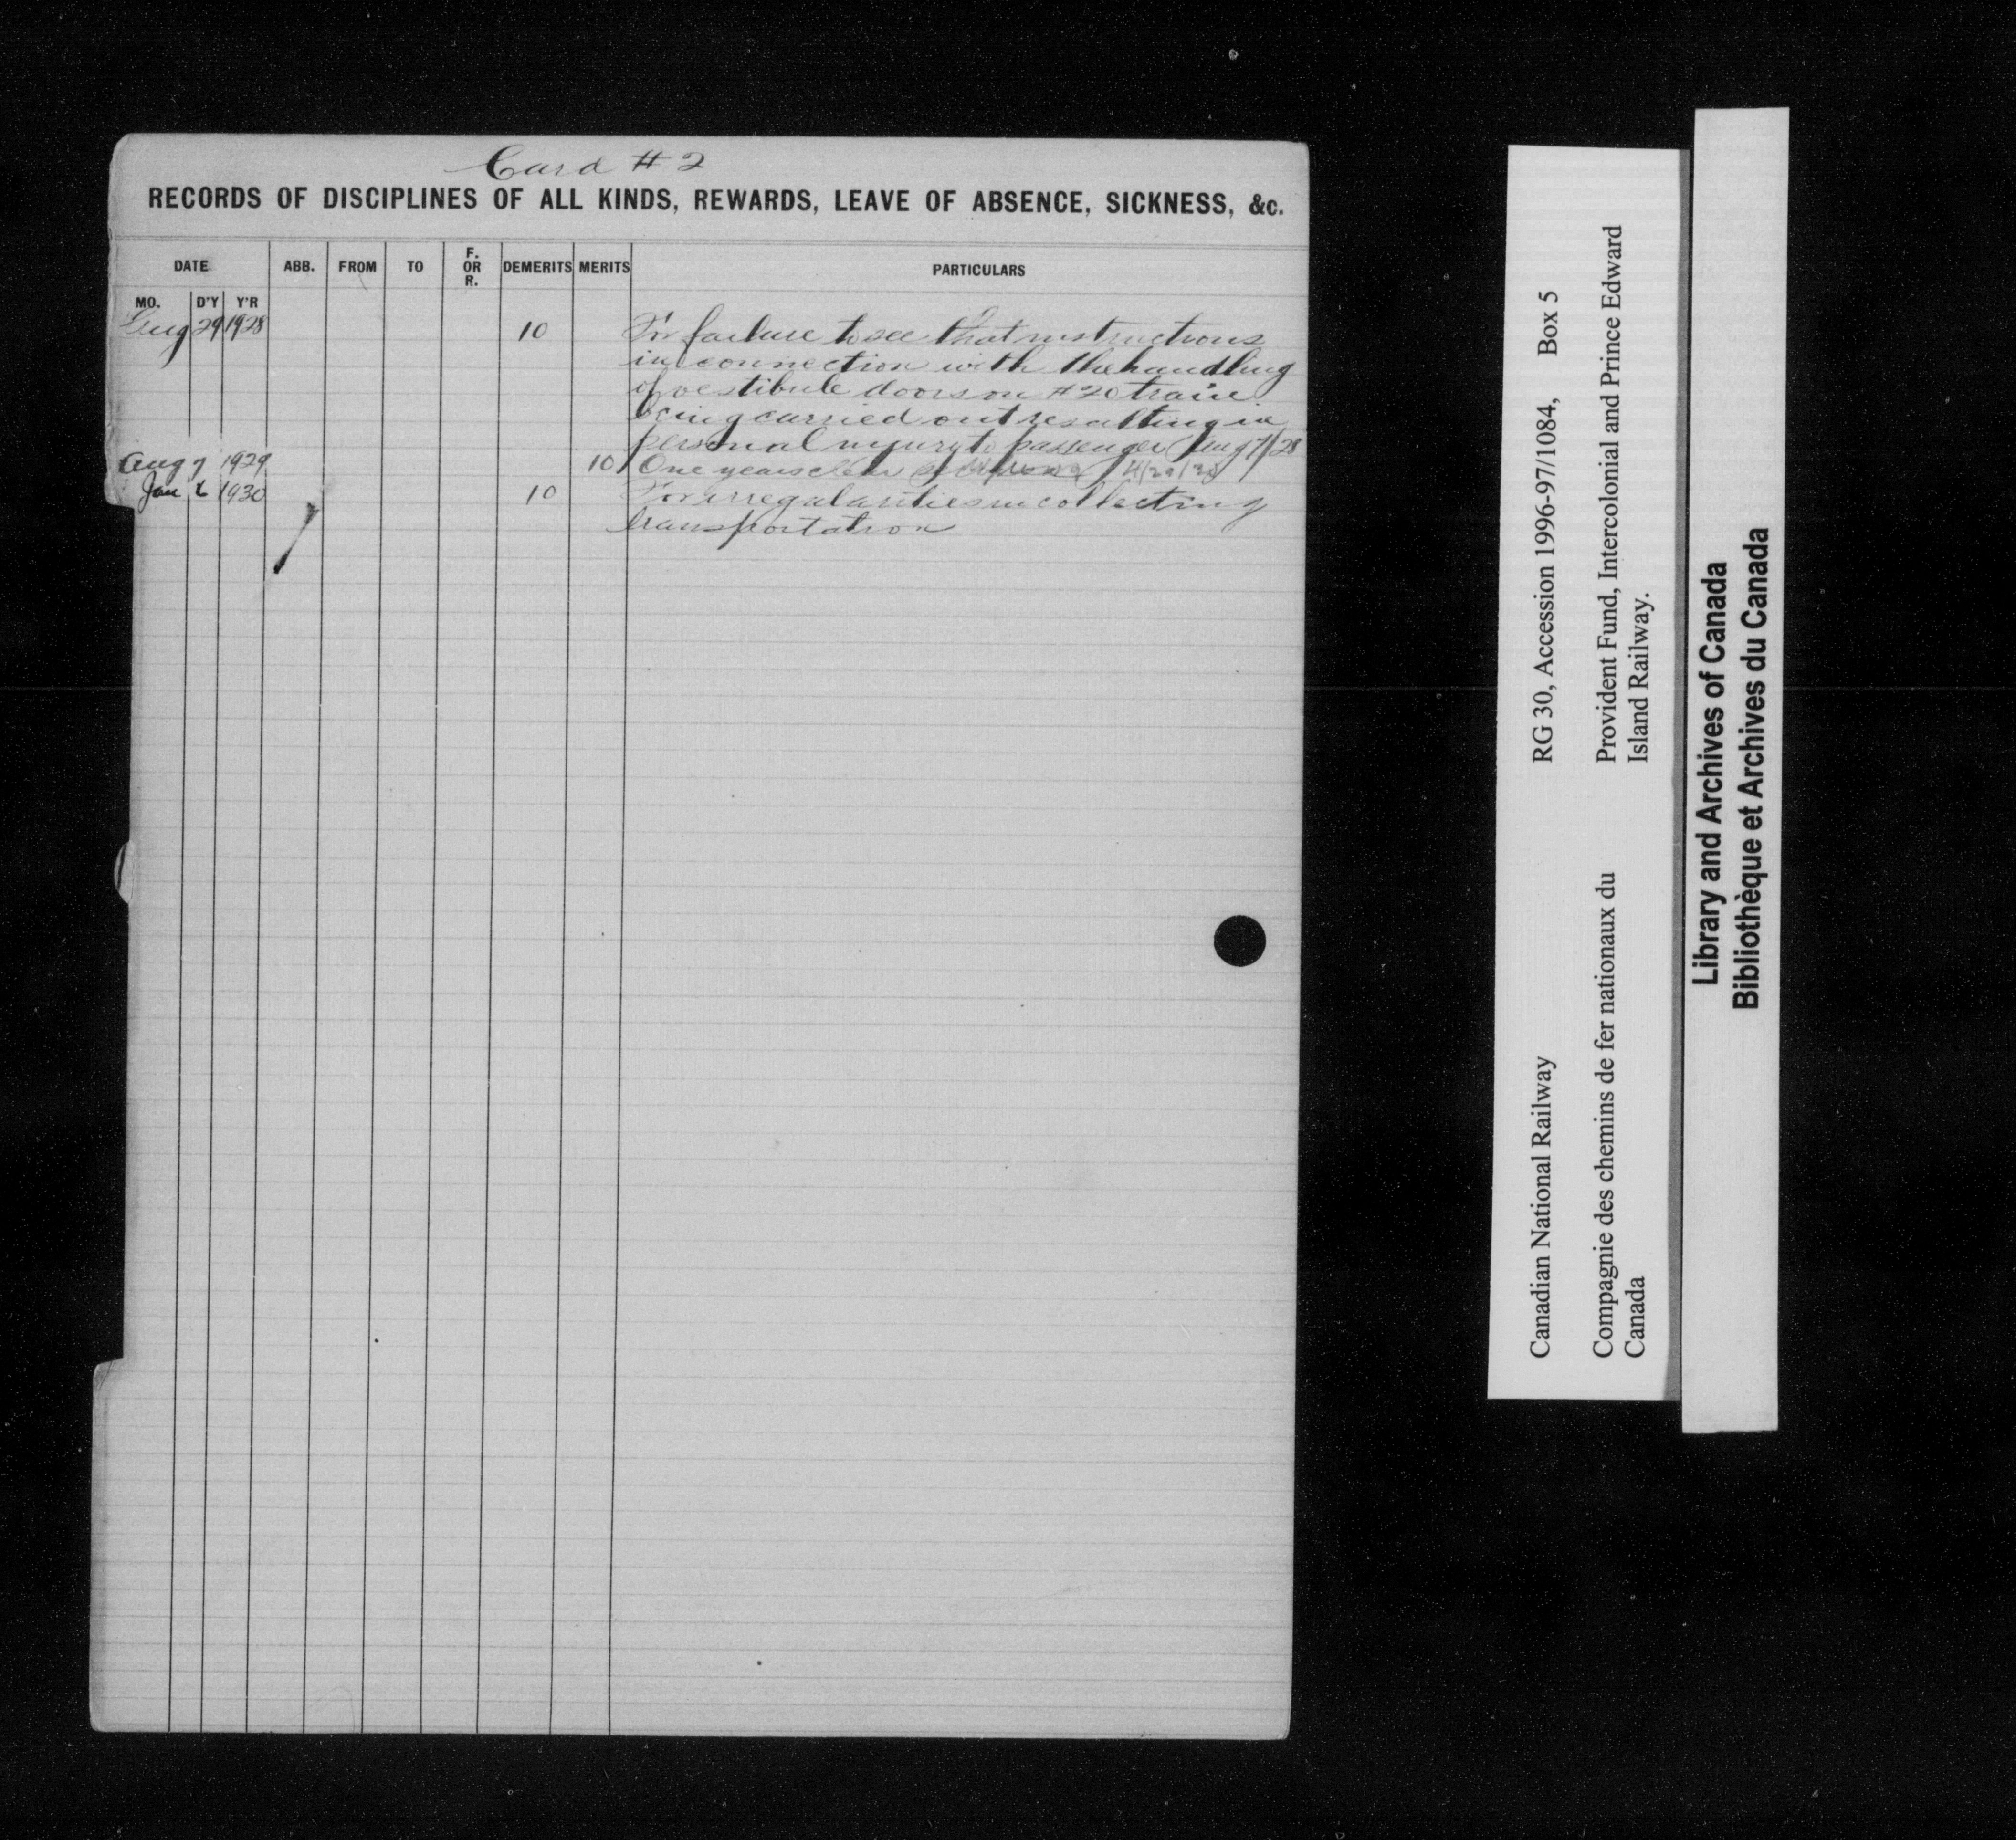 Card # 2
RECORDS OF DISCIPLINES OF ALL KINDS, REWARDS, LEAVE OF ABSENCE, SICKNESS, &c.
DATE ABB. FROM TO F. OR R. DEMERITS MERITS PARTICULARS
MO. D'Y Y'R
Aug 29 1928 10 For failure to see that instructions
in connection with the handling
of vestibule doors on #20 train
being carried out resulting in
personal injury to passenger Aug 7/28
Aug 7 1929 10 One years clear
Jan 1930 10 For irregularities in collecting
transportation
Canadian National Railway RG 30, Accession 1996-97/1084, Box 5
Compagnie des chemins de fer nationaux du Provident Fund, Intercolonial and Prince Edward
Canada Island Railway.
Library and Archives of Canada
Bibliothèque et Archives du Canada